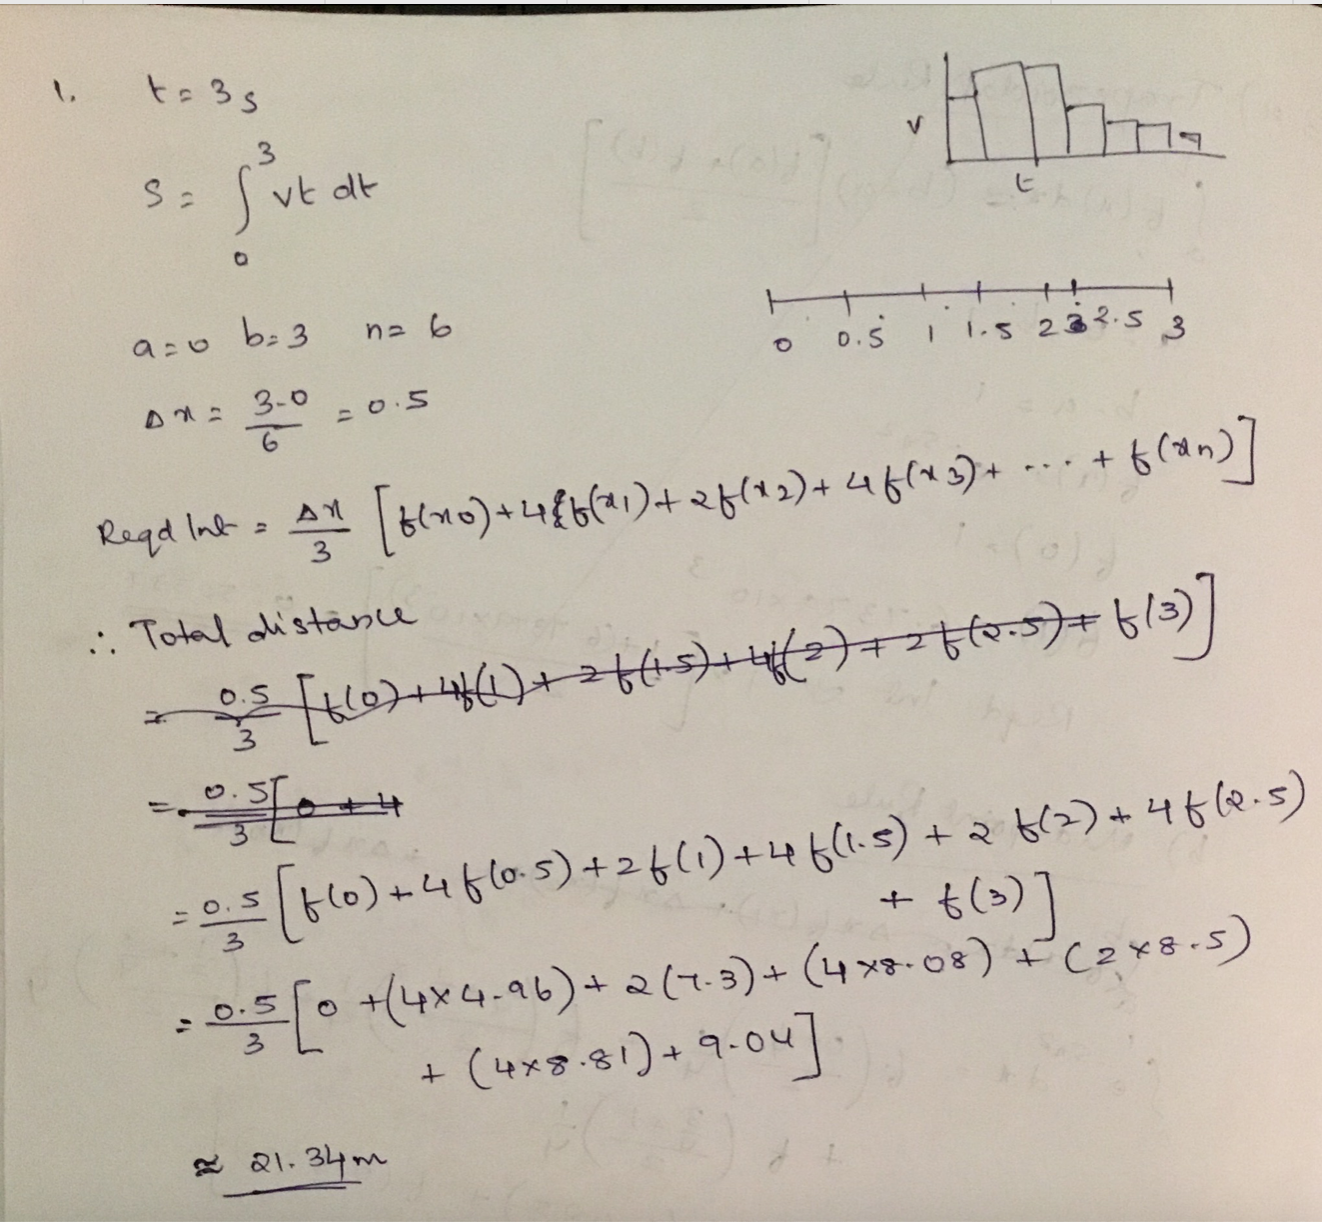 1. t = 3s
S = ∫₀³ vt dt
v
t
a=0 b=3 n=6
0 0.5 1 1.5 2 2.5 3
Δx = 3-0/6 = 0.5
Reqd Int = Δx/3 [f(x0)+4f(x1)+2f(x2)+4f(x3)+ ... + f(xn)]
∴ Total distance
= 0.5/3 [f(0)+4f(1)+2f(1.5)+4f(2)+2f(2.5)+f(3)]
= 0.5/3 [0+4
= 0.5/3 [f(0)+4f(0.5)+2f(1)+4f(1.5)+2f(2)+4f(2.5)
+ f(3)]
= 0.5/3 [0+(4×4.96)+2(7.3)+(4×8.08)+(2×8.5)
+ (4×8.81)+9.04]
≈ 21.34m